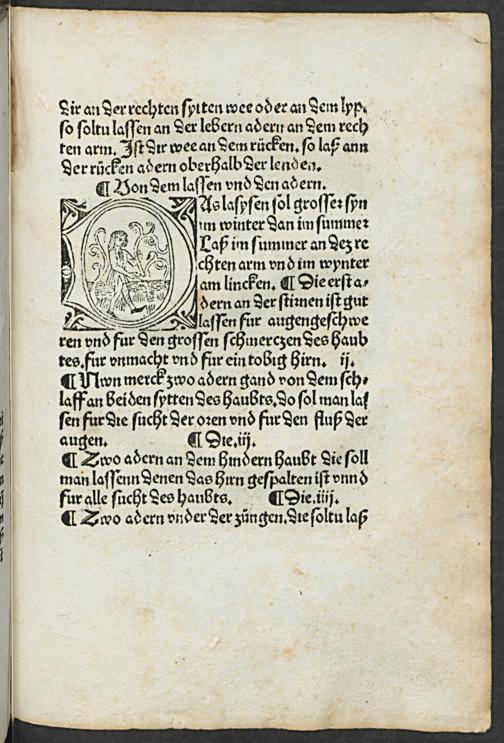 dir an der rechten sytten wee oder an dem lyp.
so soltu lassen an der lebern adern an dem rech
ten arm. Ist dir wee an dem rücken. so laß ann
der rücken adern oberhalb der lenden.
¶ Von dem lassen vnd den adern.
DAs laßsen sol grosser syn
im winter dan im summer
Laß im summer an dez re
chten arm vnd im wynter
am lincken. ¶ Die erst a⸗
dern an der stirnen ist gut
lassen fur augengeschwe
ren vnd fur den grossen schmerczen des haub
tes. fur vnmacht vnd fur ein tobig hirn. ij.
¶ Nwn merck zwo adern gand von dem sch⸗
laff an beiden sytten des haubts. do sol man las
sen fur die sucht der oren vnd fur den fluß der
augen. ¶ Die. iij.
¶ Zwo adern an dem hindern haubt die soll
man lassenn denen das hirn gespalten ist vnnd
fur alle sucht des haubts. ¶ Die. iiij.
¶ Zwo adern vnder der züngen. die soltu laß